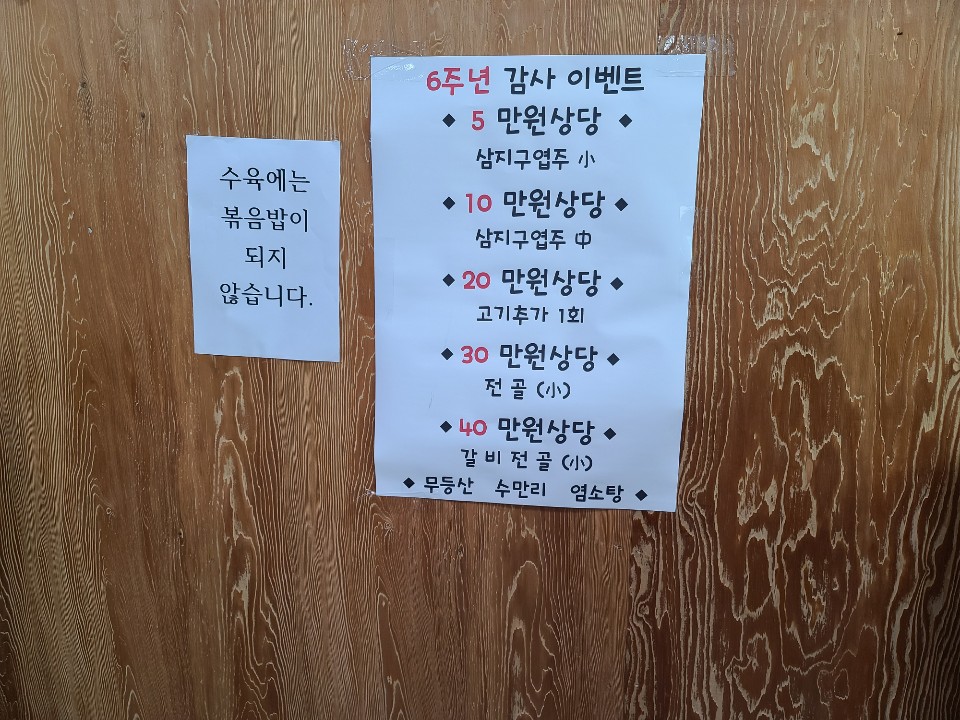 수육에는
볶음밥이
되지
않습니다.
6주년 감사 이벤트
◆ 5 만원상당 ◆
삼지구엽주 小
◆ 10 만원상당 ◆
삼지구엽주 中
◆ 20 만원상당 ◆
고기추가 1회
◆ 30 만원상당 ◆
전골 (小)
◆ 40 만원상당 ◆
갈비전골 (小)
◆ 무등산 수만리 염소탕 ◆